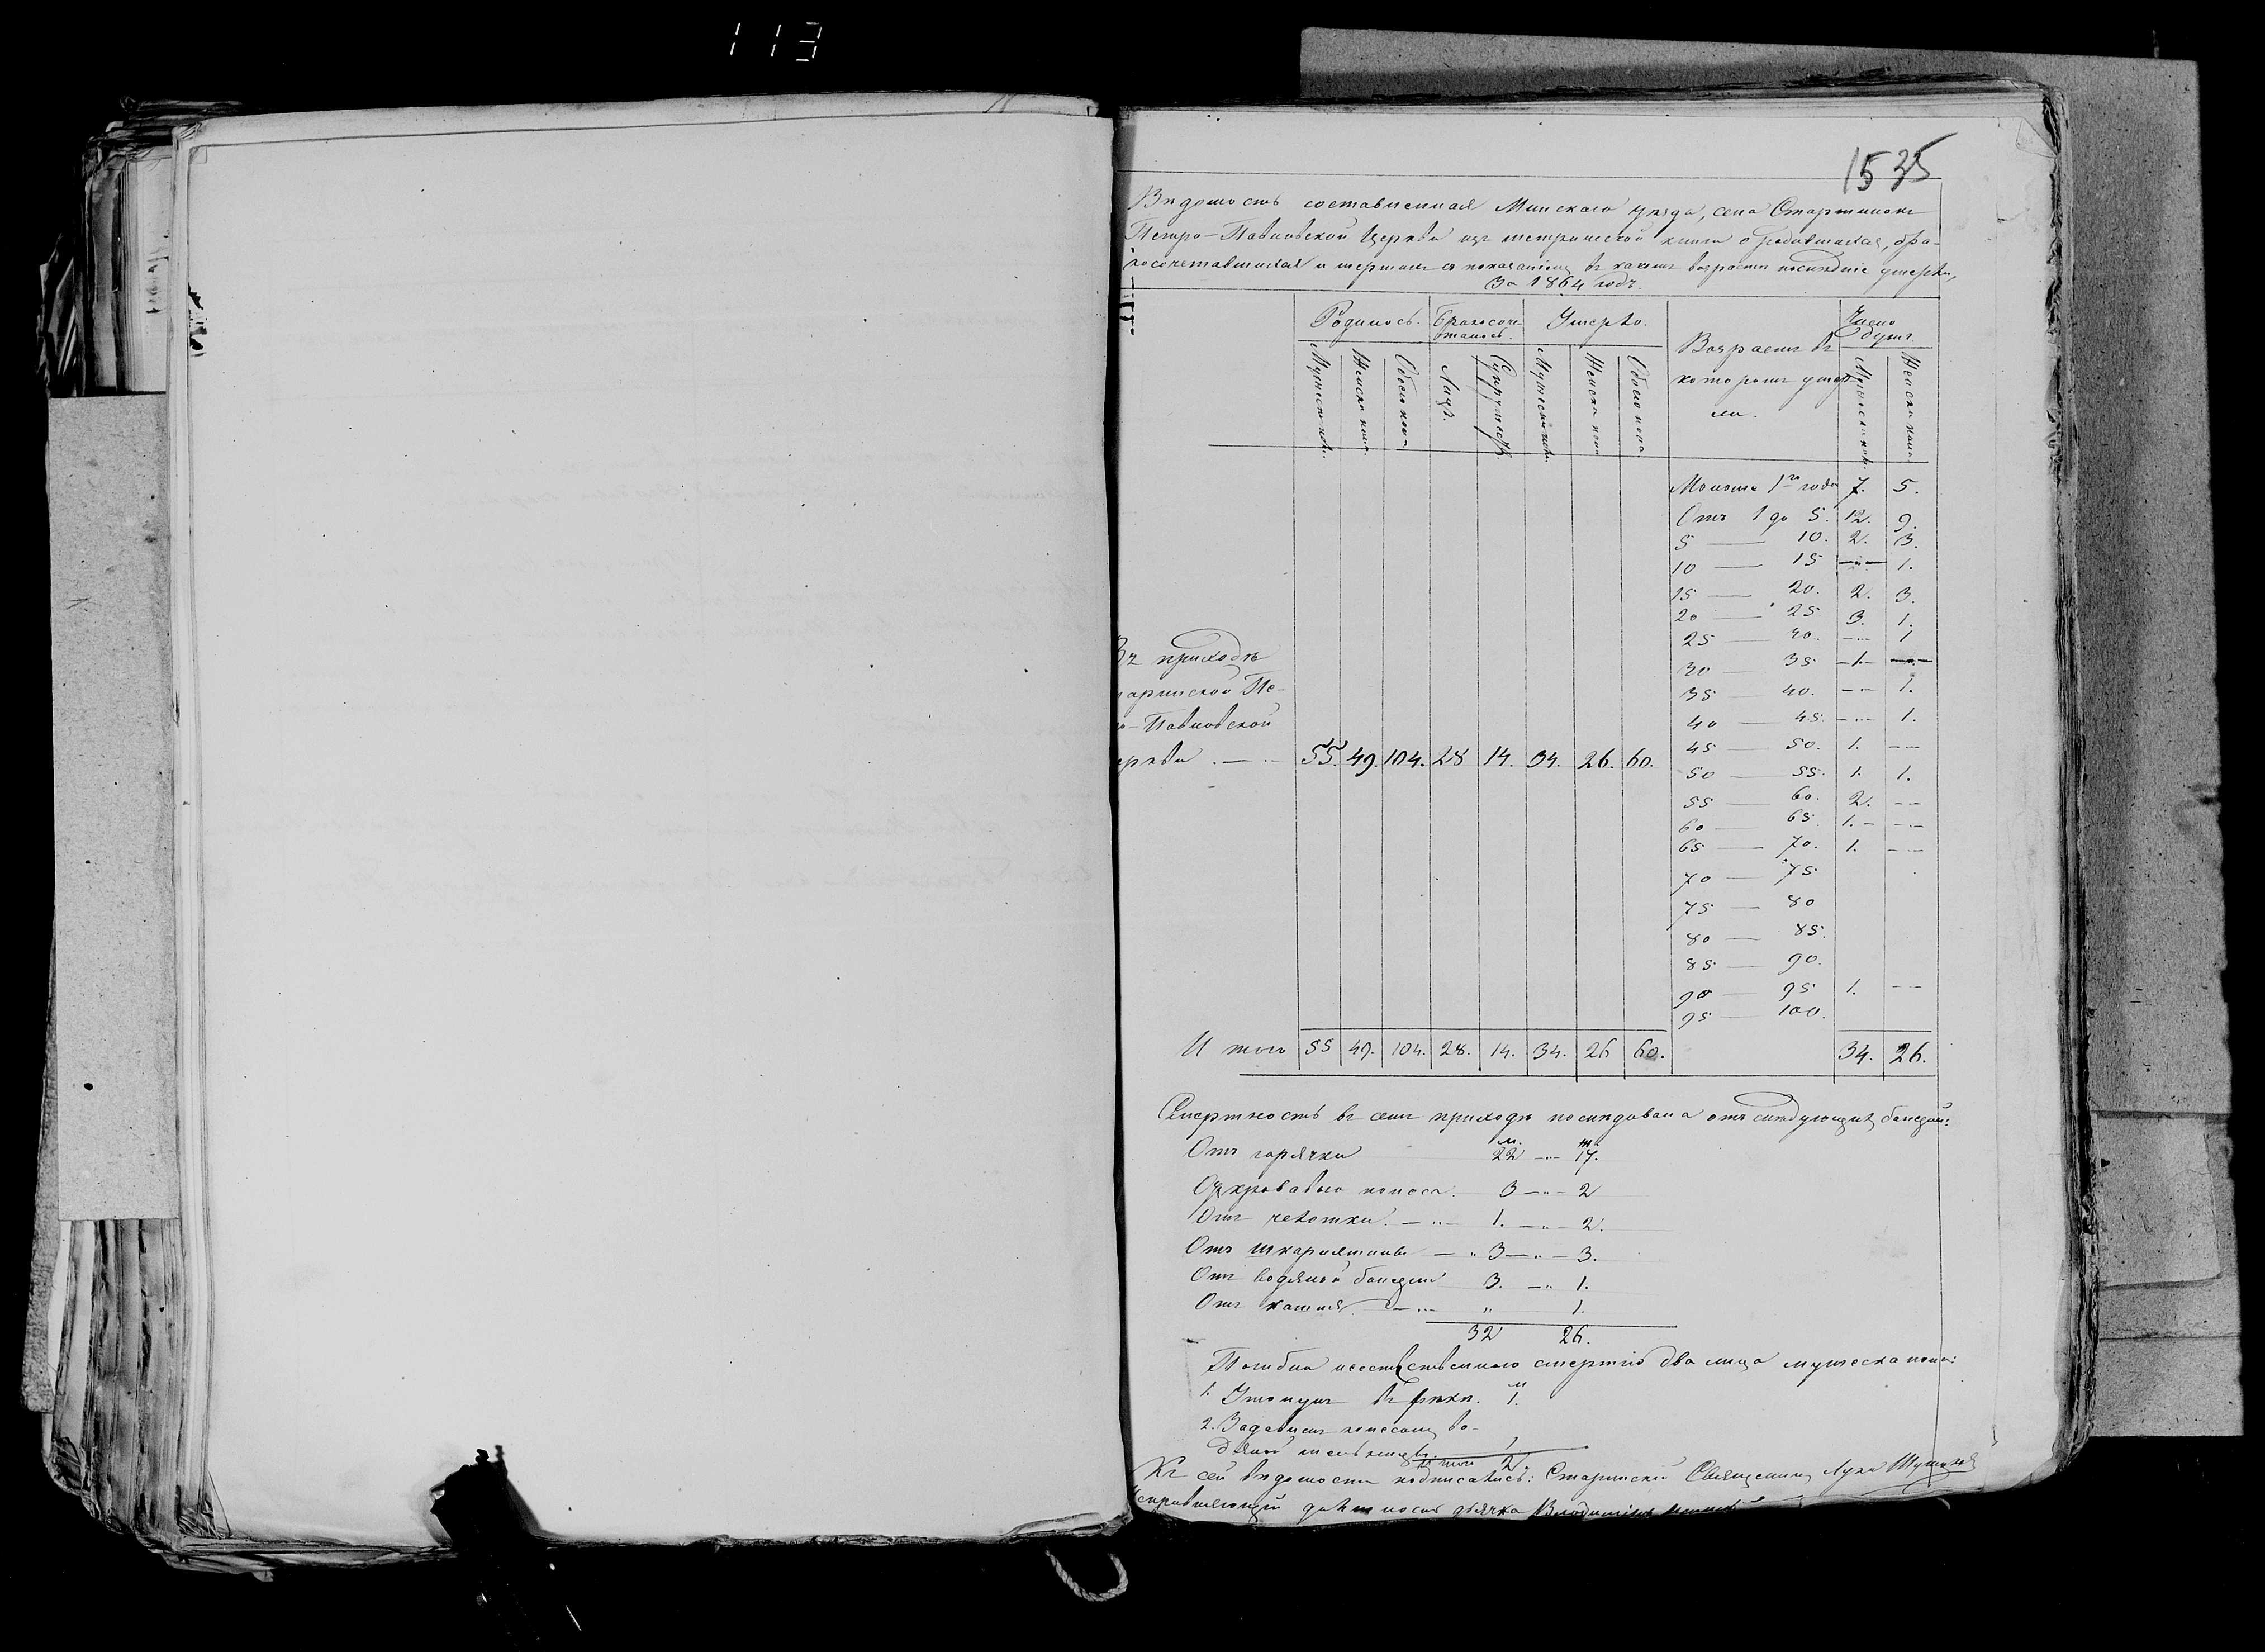 113
1535
Вѣдомость составленная Минскаго уѣзда, села Старинокъ
Петро-Павловской Церкви изъ метрической книги о родившихся, бра-
косочетавшихся и умершихъ съ показаніемъ въ какомъ возрастѣ послѣдніе умерли,
За 1864 годъ.
Родилось. Бракосоче- Умерло. Возрастъ въ Число
талось. душъ.
Мужеска пола. Женска пола. Обоего пола. Лицъ. Супружествъ. Мужеска пола. Женска пола. Обоего пола. которомъ умер- Мужеска пола. Женска пола.
ли.
Моложе 1го года 7. 5.
Отъ 1 до 5. 12. 9.
5 — 10. 2. 3.
10 — 15 —"— 1.
15 — 20. 2. 3.
20 — 25. 3. 1.
25 — 40. —"— 1
30 — 35. —1.— —"—
35 — 40. —"— 1.
40 — 45. —"— 1.
45 — 50. 1. —"—
50 — 55. 1. 1.
55 — 60. 2. —"—
60 — 65. 1. — —"—
65 — 70. 1. —"—
70 — 75
75 — 80
80 — 85.
85 — 90.
90 — 95 1. —"—
95 — 100.
Въ приходѣ
таринской Пе-
ро-Павловской
еркви . — " — 55. 49. 104. 28 14. 34. 26. 60.
Итого 55 49. 104. 28. 14. 34. 26 60. 34. 26.
Смертность въ семъ приходѣ послѣдовала отъ слѣдующихъ болезней:
м. ж.
Отъ горячки 22 —"— 17.
От кроваваго поноса. 3 —"— 2
Отъ чехотки. —"— 1. —"— 2.
Отъ шкарлятины — " 3 —"— 3.
Отъ водяной болезни 3. —"— 1.
Отъ кашля. —"— " 1.
32 26.
Погибли неестественною смертію два лица мужеска пола:
м
1. Утонулъ въ рѣкѣ. 1.
2. Задавленъ колесомъ во-
дяной мельницы. 1
Итого 2.
Къ сей вѣдомости подписались: Старинскій Священникъ Лука
справляющій должность дьячка Владиміръ